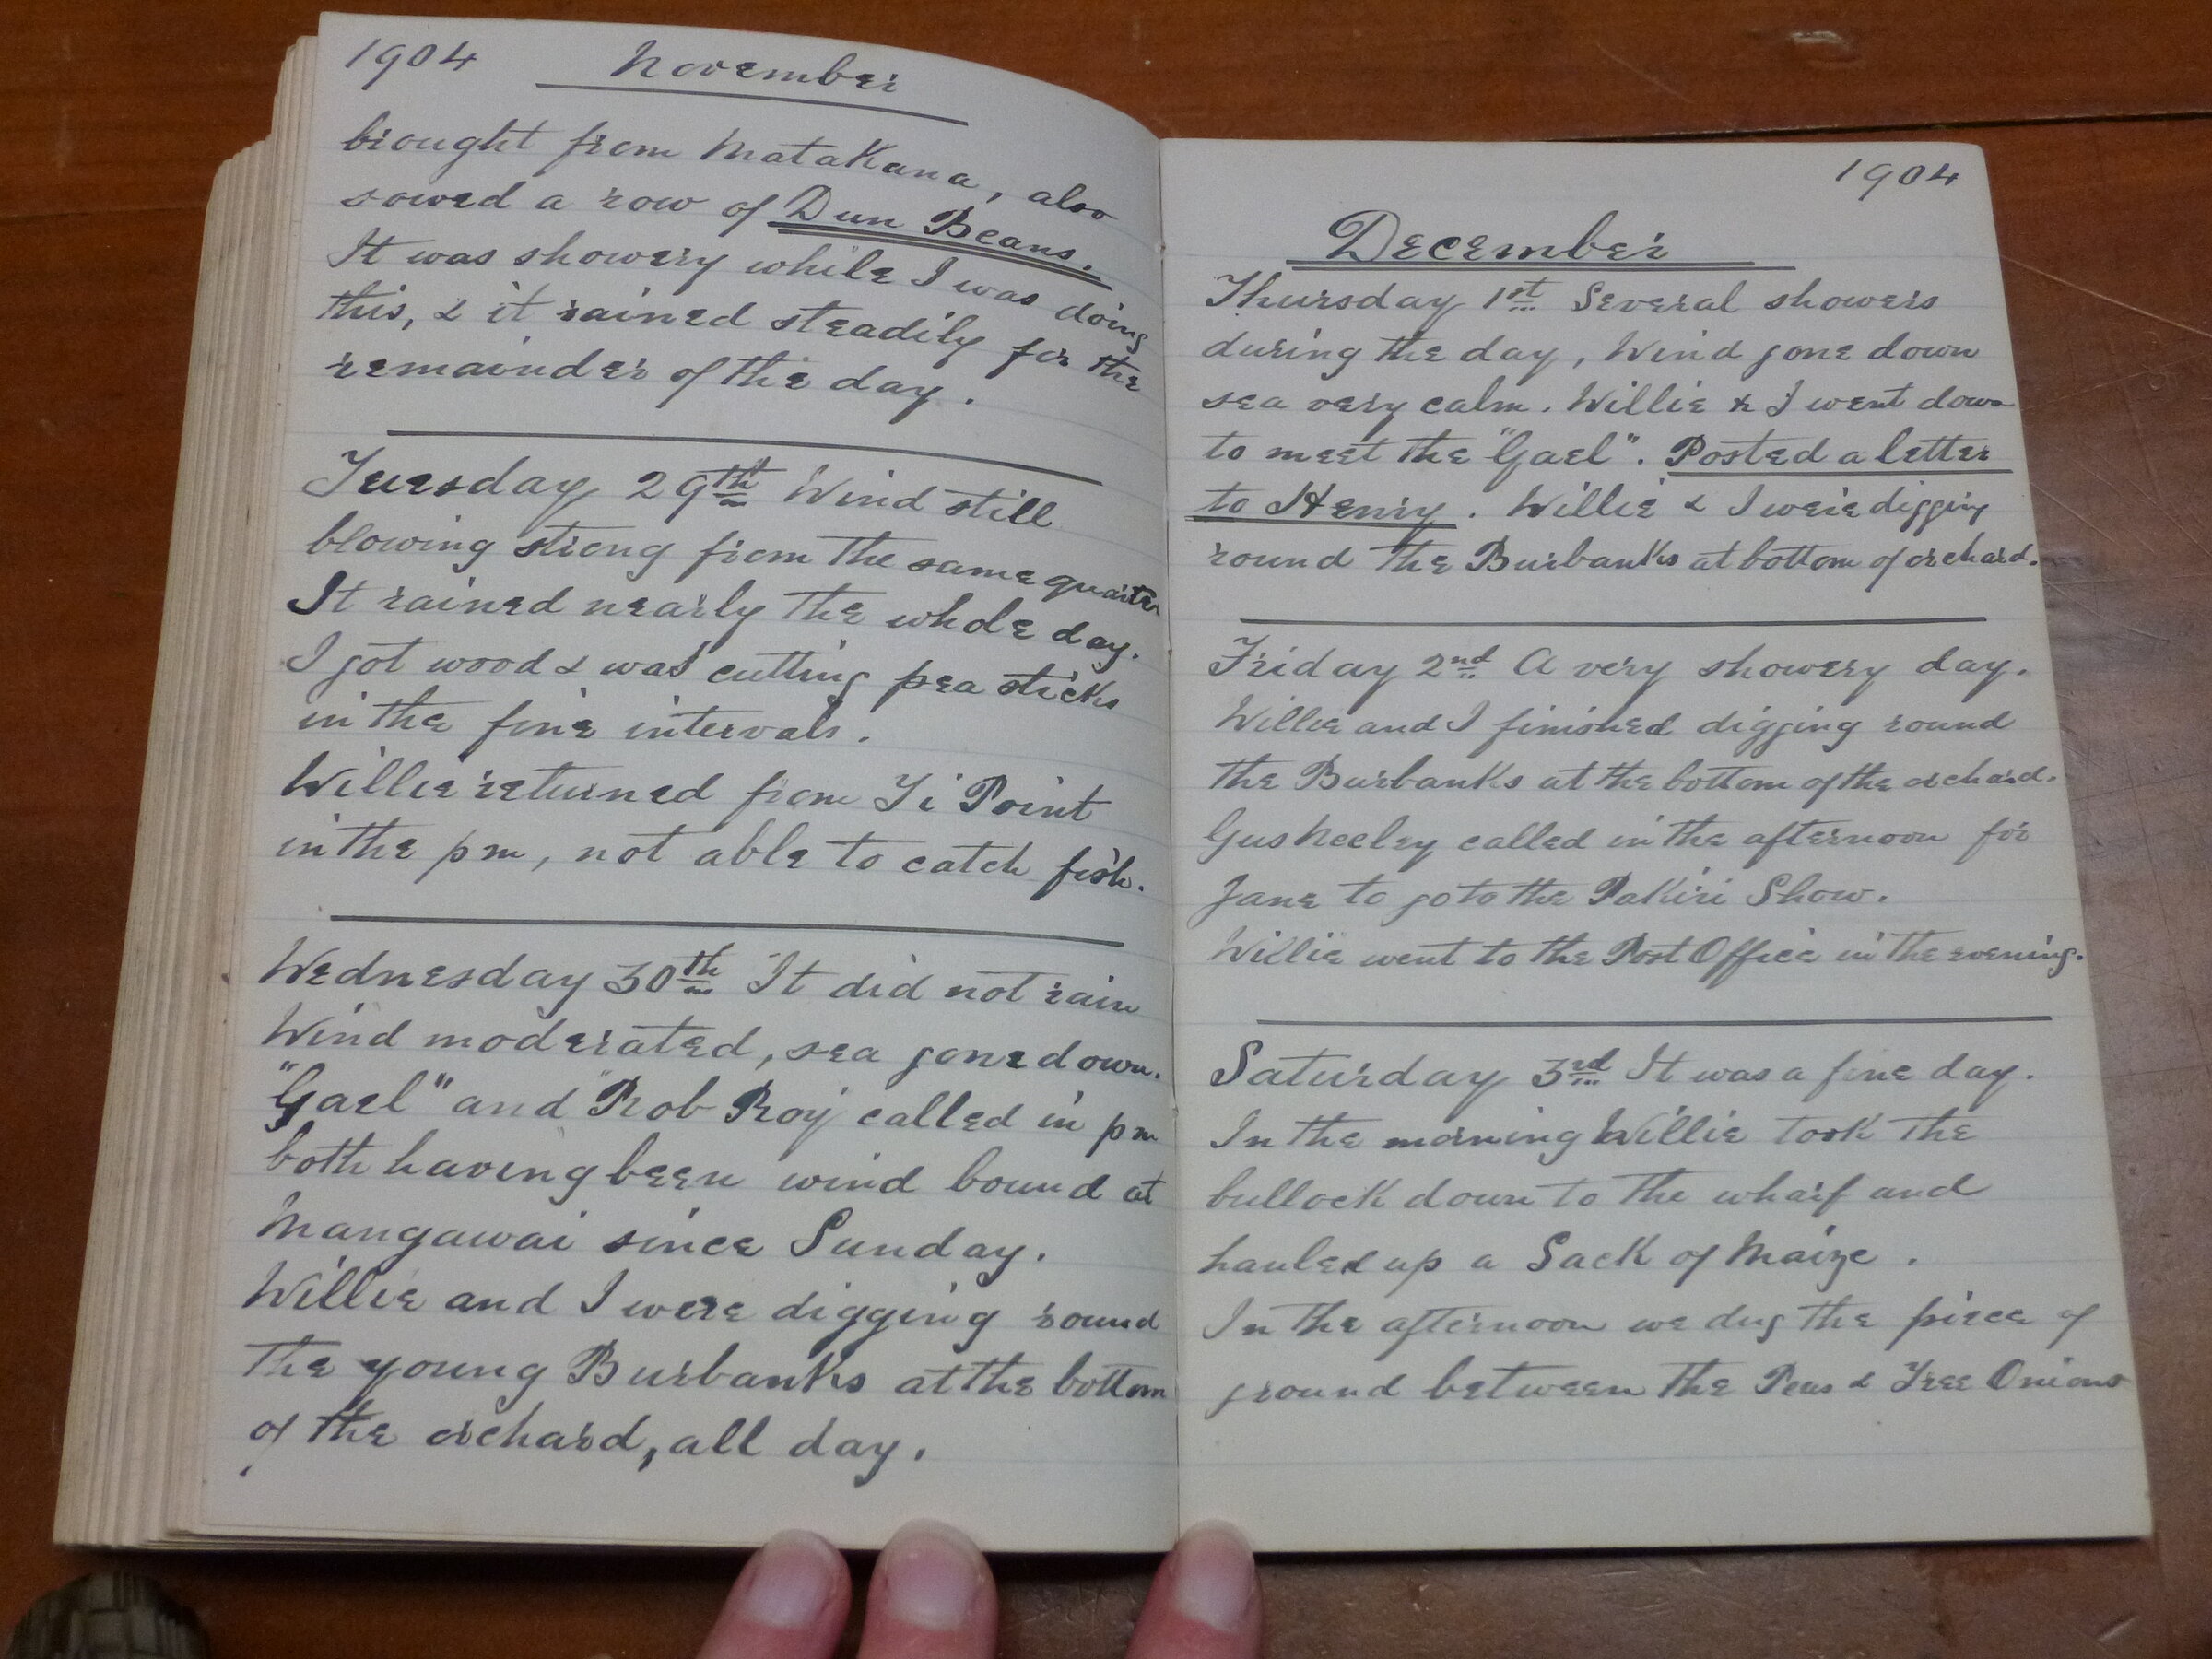 1904 November
brought from Matakana, also
sowed a row of Dun Beans.
It was showery while I was doing
this, & it rained steadily for the
remainder of the day.
Tuesday 29th Wind still
blowing strong from the same quarter
It rained nearly the whole day.
I got wood & was cutting pea sticks
in the fine intervals.
Willie returned from Ti Point
in the pm, not able to catch fish.
Wednesday 30th It did not rain
Wind moderated, sea gone down.
"Gael" and "Rob Roy" called in pm
both having been wind bound at
Mangawai since Sunday.
Willie and I were digging round
the young Burbanks at the bottom
of the orchard, all day.
1904
December
Thursday 1st Several showers
during the day, Wind gone down
sea very calm. Willie & I went down
to meet the "Gael". Posted a letter
to Henry. Willie & I were digging
round the Burbanks at bottom of orchard.
Friday 2nd A very showery day.
Willie and I finished digging round
the Burbanks at the bottom of the orchard.
Gus Neeley called in the afternoon for
Jane to go to the Pakiri Show.
Willie went to the Post Office in the evening.
Saturday 3rd It was a fine day.
In the morning Willie took the
bullock down to the wharf and
hauled up a Sack of Maize.
In the afternoon we dug the piece of
ground between the Peas & Tree Onions